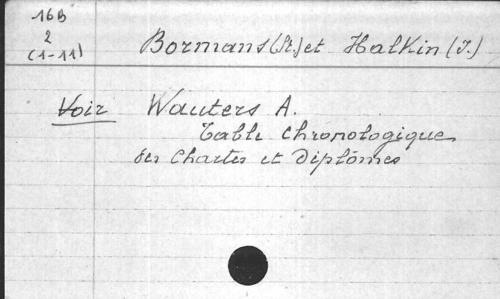 16B
2
(1-11)
Bormans (St.) et Halkin (J.)
Voir Wauters A.
Table Chronologique
des Chartes et Diplômes